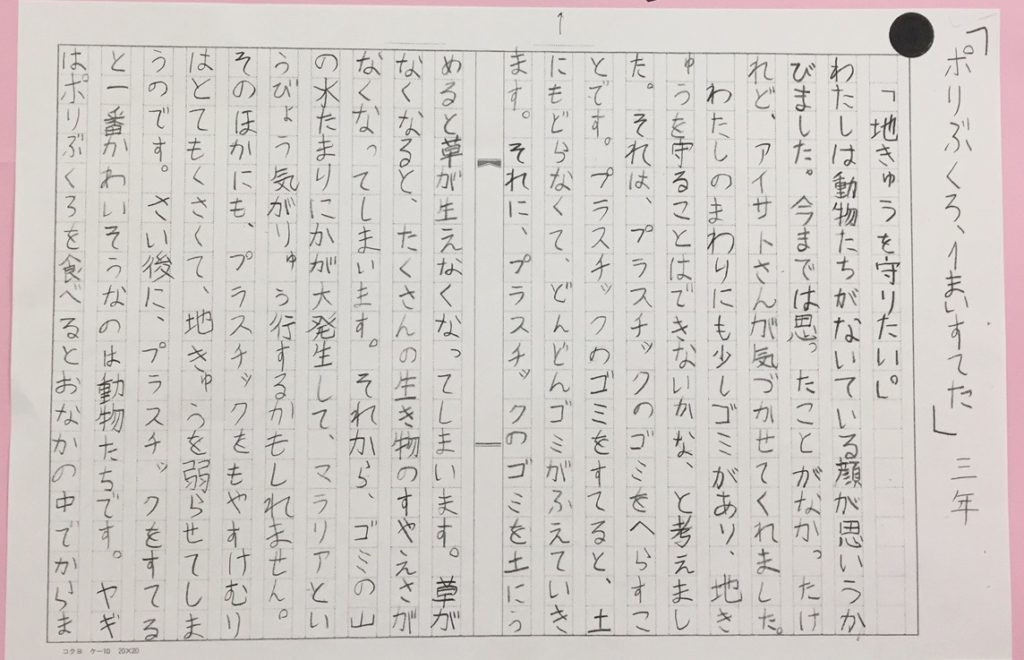 「ポリぶくろ、1まい、すてた」 三年
「地きゅうを守りたい。」
わたしは動物たちがないている顔が思いうか
びました。今までは思ったことがなかったけ
れど、アイサトさんが気づかせてくれました。
わたしのまわりにも少しゴミがあり、地き
ゅうを守ることはできないかな、と考えまし
た。それは、プラスチックのゴミをへらすこ
とです。プラスチックのゴミをすてると、土
にもどらなくて、どんどんゴミがふえていき
ます。それに、プラスチックのゴミを土にう
めると草が生えなくなってしまいます。草が
なくなると、たくさんの生き物のすやえさが
なくなってしまいます。それから、ゴミの山
の水たまりにかが大発生して、マラリアとい
うびょう気がりゅう行するかもしれません。
そのほかにも、プラスチックをもやすけむり
はとてもくさくて、地きゅうを弱らせてしま
うのです。さい後に、プラスチックをすてる
と一番かわいそうなのは動物たちです。ヤギ
はポリぶくろを食べるとおなかの中でからま
コクヨ ケー10 20×20